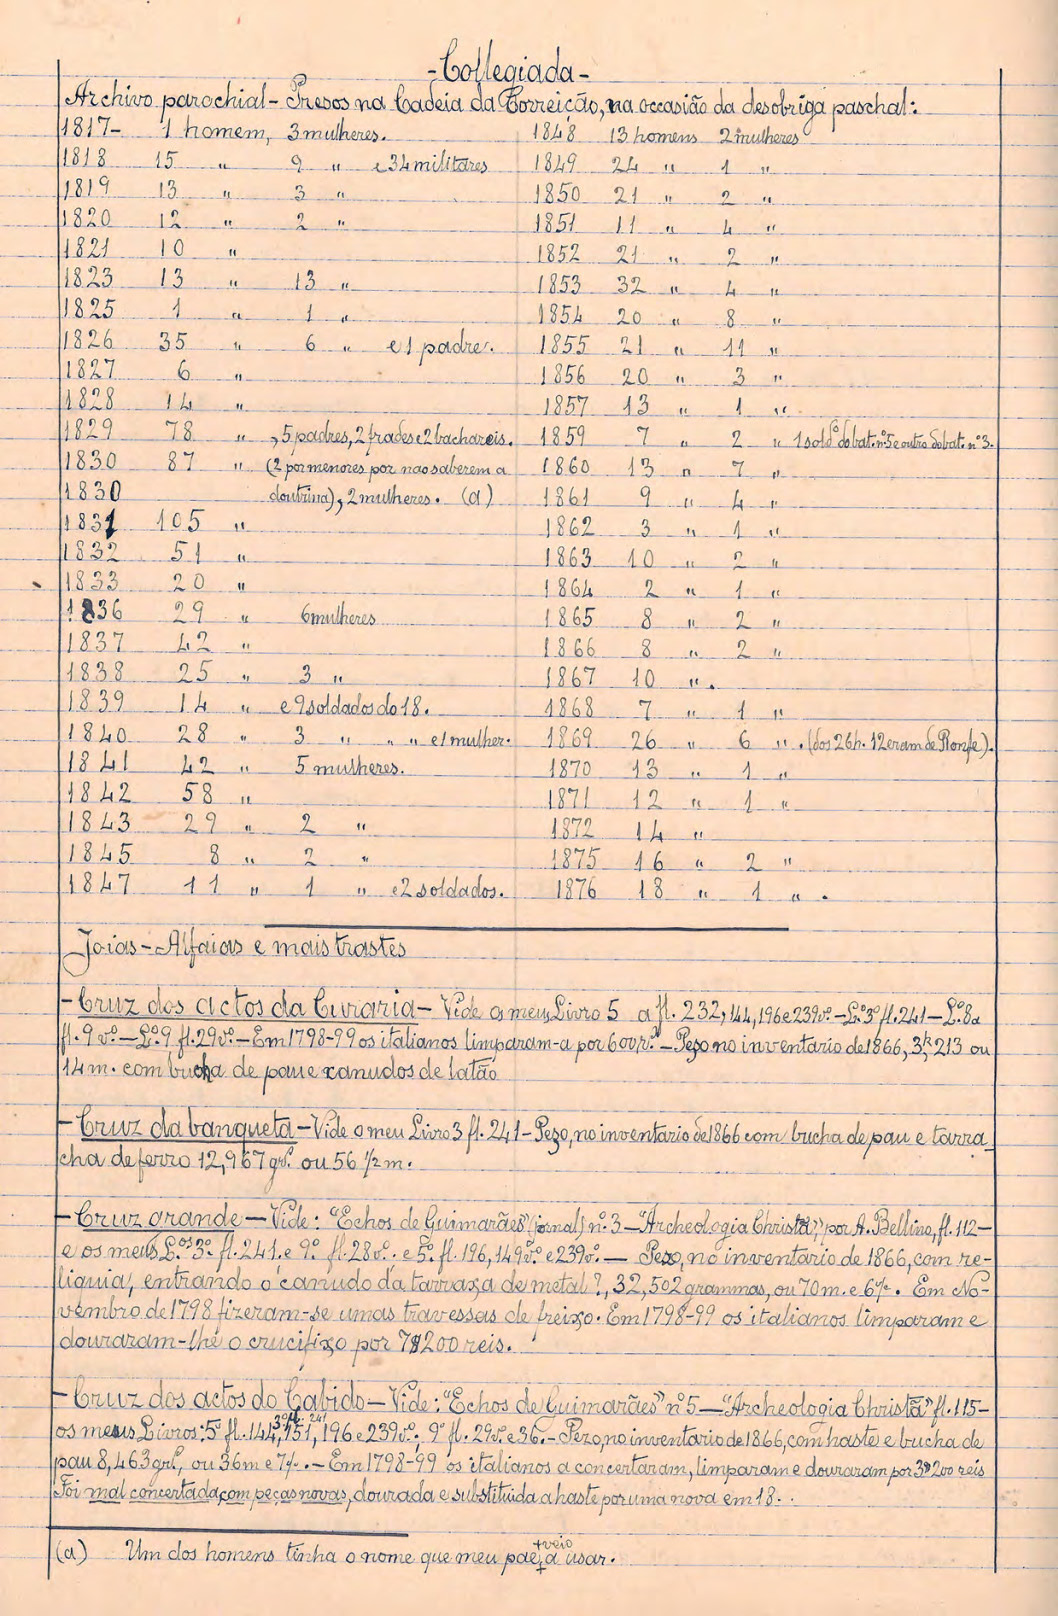 -Collegiada-
Archivo parochial - Presos na Cadeia da Correição, na occasião da desobriga paschal:
1817- 1 homem, 3 mulheres.
1818 15 " 9 " e 34 militares
1819 13 " 3 "
1820 12 " 2 "
1821 10 "
1823 13 " 13 "
1825 1 " 1 "
1826 35 " 6 " e 1 padre.
1827 6 "
1828 14 "
1829 78 " , 5 padres, 2 frades e 2 bachareis.
1830 87 " (2 por menores por nao saberem a
1830 doutrina), 2 mulheres. (a)
1831 105 "
1832 51 "
1833 20 "
1836 29 " 6 mulheres
1837 42 "
1838 25 " 3 "
1839 14 " e 9 soldados do 18.
1840 28 " 3 " " " e 1 mulher.
1841 42 " 5 mulheres.
1842 58 "
1843 29 " 2 "
1845 8 " 2 "
1847 11 " 1 " e 2 soldados.
1848 13 homens 2 mulheres
1849 24 " 1 "
1850 21 " 2 "
1851 11 " 4 "
1852 21 " 2 "
1853 32 " 4 "
1854 20 " 8 "
1855 21 " 11 "
1856 20 " 3 "
1857 13 " 1 "
1859 7 " 2 " 1 sold.º do bat. nº 5 e outro do bat. nº 3.
1860 13 " 7 "
1861 9 " 4 "
1862 3 " 1 "
1863 10 " 2 "
1864 2 " 1 "
1865 8 " 2 "
1866 8 " 2 "
1867 10 ".
1868 7 " 1 "
1869 26 " 6 " . (dos 26 h. 12 eram de Ronfe).
1870 13 " 1 "
1871 12 " 1 "
1872 14 "
1875 16 " 2 "
1876 18 " 1 " .
Joias - Alfaias e mais trastes
- Cruz dos actos da Curaria - Vide o meu Livro 5 a fl. 232, 144, 196 e 239 vº. - L.º 3º fl. 241 - L.º 8 a
fl. 9 vº. - L.º 9 fl. 29 vº. - Em 1798-99 os italianos limparam-a por 600 r.s - Pezo no inventario de 1866, 3k, 213 ou
14 m. com bucha de pau e canudos de latão
- Cruz da banqueta - Vide o meu Livro 3 fl. 241 - Pezo, no inventario de 1866 com bucha de pau e tarra-
cha de ferro 12,967 gr.s ou 56 1/2 m.
- Cruz grande - Vide: "Echos de Guimarães" (jornal) nº. 3 - "Archeologia Christã", por A. Bellino, fl. 112 -
e os meus L.os 3º. fl. 241. e 9º. fl. 28 vº. e 5º. fl. 196, 149 vº. e 239 vº. - Pezo, no inventario de 1866, com re-
liquia, entrando o canudo da tarraxa de metal ?, 32,502 grammas, ou 70 m. e 6/8. Em No-
vembro de 1798 fizeram-se umas travessas de freixo. Em 1798-99 os italianos limparam e
douraram-lhe o crucifixo por 7$200 reis.
- Cruz dos actos do Cabido - Vide: "Echos de Guimarães" nº 5 - "Archeologia Christã" fl. 115 -
os meus Livros: 5º fl. 144, 3º fl. 241 151, 196 e 239 vº., 9º fl. 29 vº. e 36. - Pezo, no inventario de 1866, com haste e bucha de
pau 8,463 gr.s, ou 36 m e 7/8. - Em 1798-99 os italianos a concertaram, limparam e douraram por 3$200 reis
Foi mal concertada, com peças novas, dourada e substituida a haste por uma nova em 18..
(a) Um dos homens tinha o nome que meu pae + veio a usar.